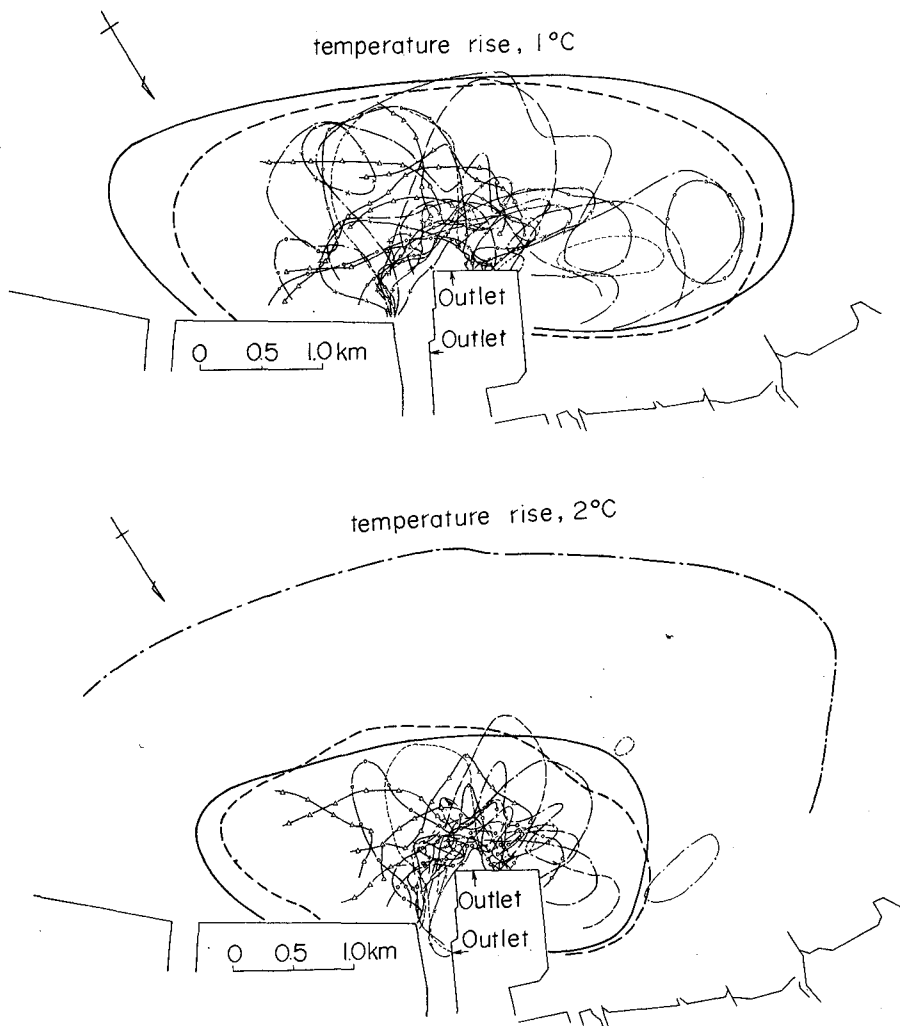 temperature rise, 1°C
Outlet
Outlet
0 0.5 1.0km
temperature rise, 2°C
Outlet
Outlet
0 0.5 1.0km